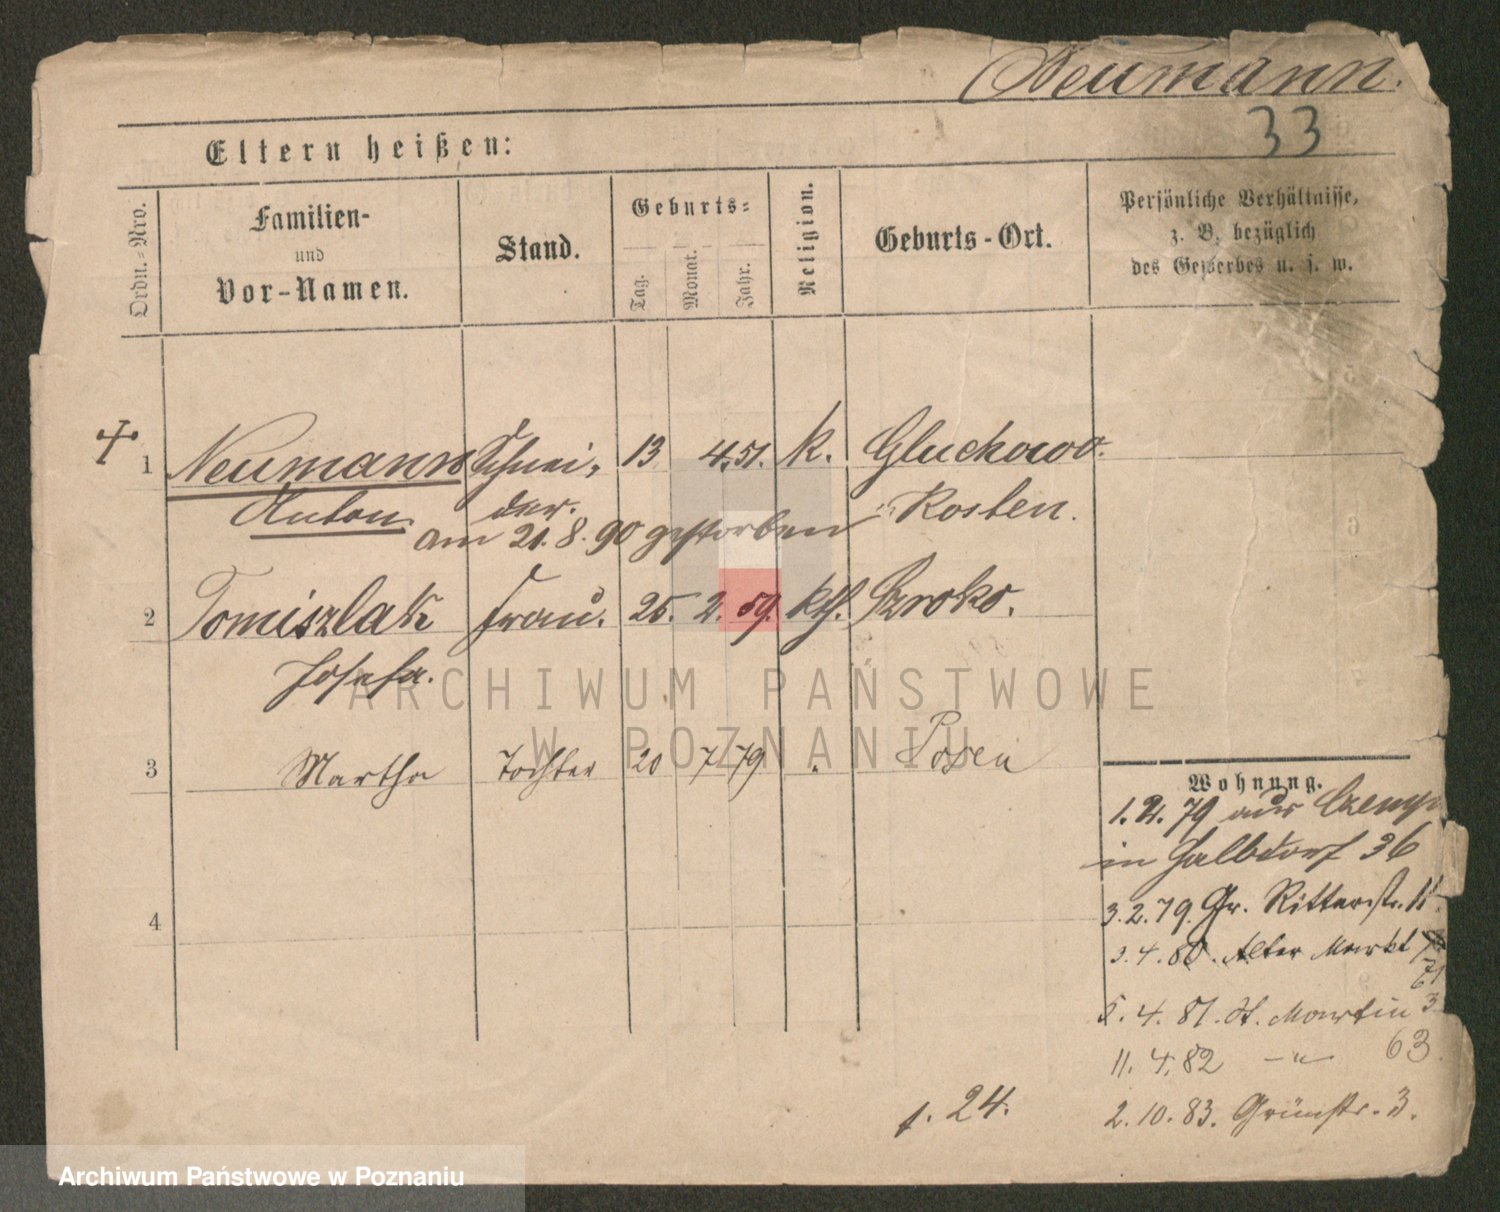 Neumann.
33
Eltern heißen:
Ordn.-Nro.
Familien-
und
Vor-Namen.
Stand.
Geburts-
Tag.
Monat.
Jahr.
Religion.
Geburts-Ort.
Persönliche Verhältnisse,
z. B. bezüglich
des Gewerbes u. s. w.
1 Neumann Schnei- 13 4. 51. k. Gluchowo.
Anton der. Kosten.
am 21. 8. 90 gestorben
2 Tomiszlak Frau. 25. 2. 59. kth. Sroko.
Josefa.
3 Martha Tochter 20 7 79 Posen
4
Wohnung.
1. 2. 79 aus Czemp
in Halbdorf 36
3. 2. 79. Gr. Ritterstr. 11
3. 4. 80. Alter Markt
71
5. 4. 81. St. Martin 3
11. 4. 82 -"- 63.
2. 10. 83. Grünstr. 3.
1. 24.
ARCHIWUM PAŃSTWOWE
W POZNANIU
Archiwum Państwowe w Poznaniu